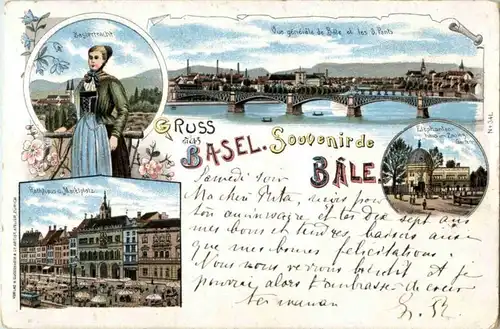 Baslertracht
Vue générale de Bâle et les 3 Ponts
GRUSS
aus
BASEL. Souvenir de
BÂLE.
Elephanten
haus im Zoolog.
Garten
Rathhaus u. Marktplatz
Samedi soir
Ma chère
ton anniversaire et tes dix sept ans
mes bons et tendres baisers ainsi
que mes bonnes félicitations.
Nous nous verrons bientôt et je
pourrai alors t'embrasser de coeur